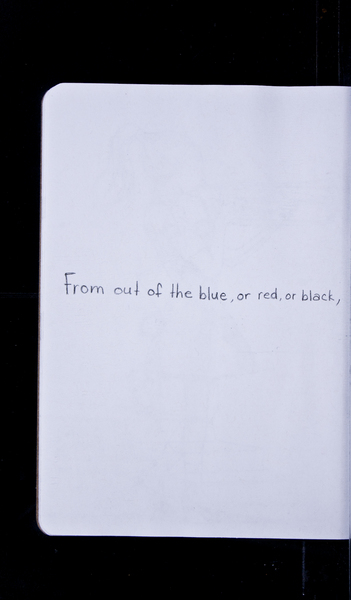 From out of the blue, or red, or black,